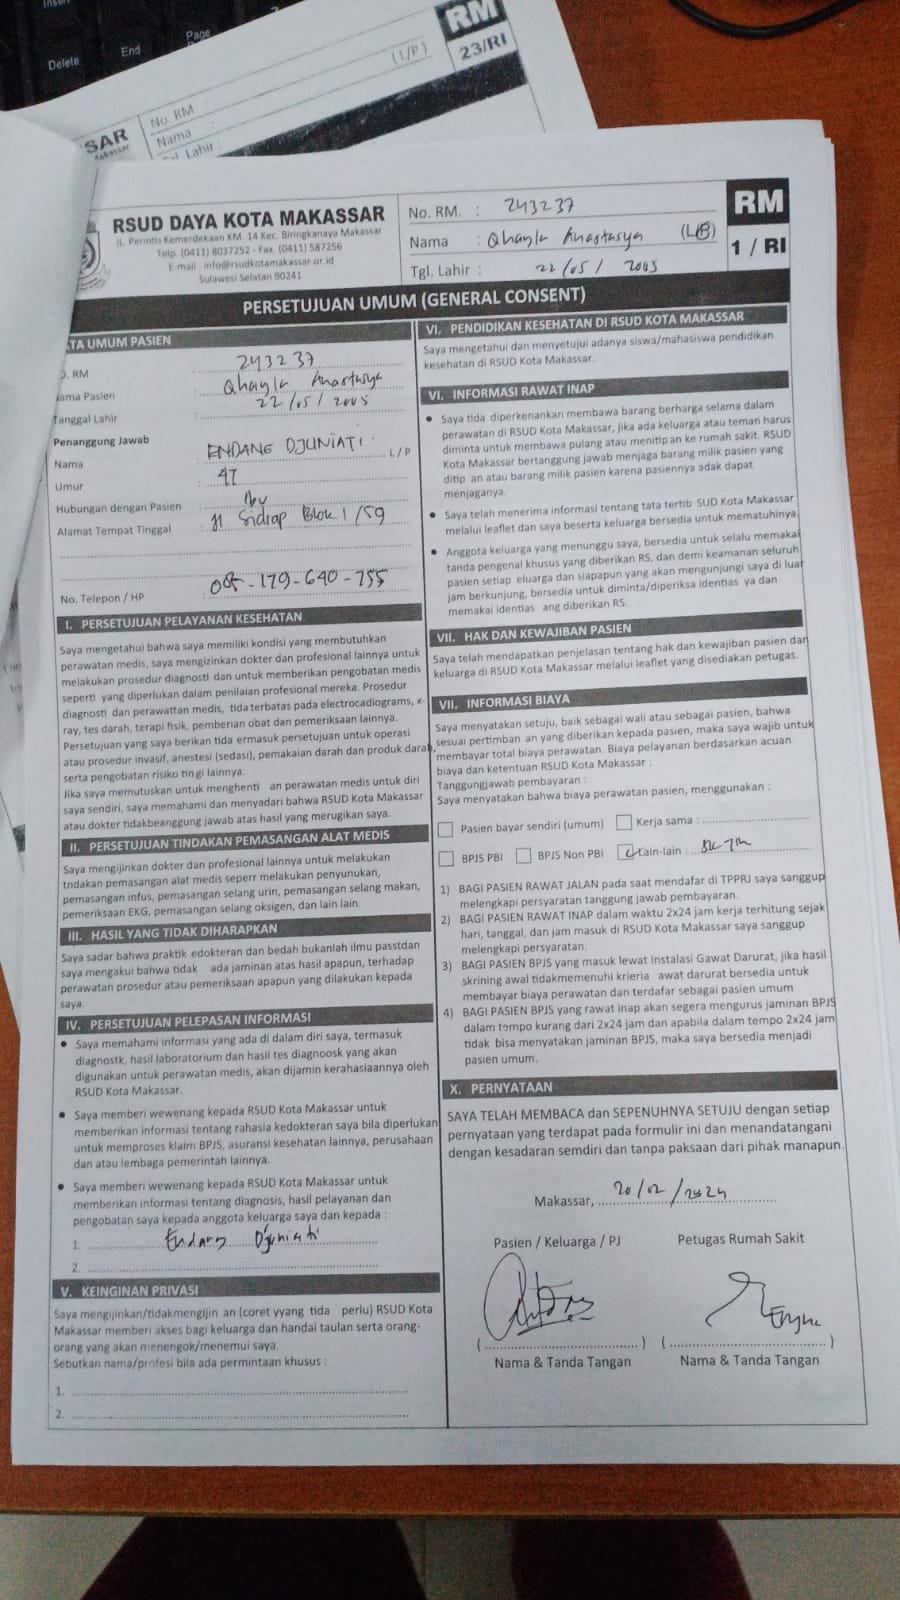 Delete
End
Page
RM
23/RI
(L/P)
No. RM :
Nama :
Lahir :
SAR
RSUD DAYA KOTA MAKASSAR
JL. Perintis Kemerdekaan KM. 14 Kec. Biringkanaya Makassar
Telp. (0411) 8037252 - Fax. (0411) 587256
E-mail : info@rsudkotamakassar.or.id
Sulawesi Selatan 90241
No. RM. : 243237
Nama : Qhayla Anastasya
Tgl. Lahir : 22/05/2005
RM
1 / RI
PERSETUJUAN UMUM (GENERAL CONSENT)
TA UMUM PASIEN
RM 243237
ama Pasien Qhayla Anastasya
Tanggal Lahir 22/05/2005
Penanggung Jawab
Nama : ENDANG DJUNIATI L/P
Umur : 47
Hubungan dengan Pasien : Ibu
Alamat Tempat Tinggal : Jl Sidrap Blok I /59
No. Telepon / HP : 085-179-640-755
I. PERSETUJUAN PELAYANAN KESEHATAN
Saya mengetahui bahwa saya memiliki kondisi yang membutuhkan
perawatan medis, saya mengizinkan dokter dan profesional lainnya untuk
melakukan prosedur diagnosti dan untuk memberikan pengobatan medis
seperti yang diperlukan dalam penilaian profesional mereka. Prosedur
diagnosti dan perawattan medis, tida terbatas pada electrocadiograms, x-
ray, tes darah, terapi fisik, pemberian obat dan pemeriksaan lainnya.
Persetujuan yang saya berikan tida ermasuk persetujuan untuk operasi
atau prosedur invasif, anestesi (sedasi), pemakaian darah dan produk darah,
serta pengobatan risiko tin gi lainnya.
Jika saya memutuskan untuk menghenti an perawatan medis untuk diri
saya sendiri, saya memahami dan menyadari bahwa RSUD Kota Makassar
atau dokter tidakbeanggung jawab atas hasil yang merugikan saya.
II. PERSETUJUAN TINDAKAN PEMASANGAN ALAT MEDIS
Saya mengijinkan dokter dan profesional lainnya untuk melakukan
tndakan pemasangan alat medis seperr melakukan penyunukan,
pemasangan infus, pemasangan selang urin, pemasangan selang makan,
pemeriksaan EKG, pemasangan selang oksigen, dan lain lain.
III. HASIL YANG TIDAK DIHARAPKAN
Saya sadar bahwa praktik edokteran dan bedah bukanlah ilmu passtdan
saya mengakui bahwa tidak ada jaminan atas hasil apapun, terhadap
perawatan prosedur atau pemeriksaan apapun yang dilakukan kepada
saya.
IV. PERSETUJUAN PELEPASAN INFORMASI
• Saya memahami informasi yang ada di dalam diri saya, termasuk
diagnostk, hasil laboratorium dan hasil tes diagnoosk yang akan
digunakan untuk perawatan medis, akan dijamin kerahasiaannya oleh
RSUD Kota Makassar.
• Saya memberi wewenang kepada RSUD Kota Makassar untuk
memberikan informasi tentang rahasia kedokteran saya bila diperlukan
untuk memproses klaim BPJS, asuransi kesehatan lainnya, perusahaan
dan atau lembaga pemerintah lainnya.
• Saya memberi wewenang kepada RSUD Kota Makassar untuk
memberikan informasi tentang diagnosis, hasil pelayanan dan
pengobatan saya kepada anggota keluarga saya dan kepada :
1. Endang Djuniati
2.
V. KEINGINAN PRIVASI
Saya mengijinkan/tidakmengijin an (coret yyang tida perlu) RSUD Kota
Makassar memberi akses bagi keluarga dan handai taulan serta orang-
orang yang akan menengok/menemui saya.
Sebutkan nama/profesi bila ada permintaan khusus :
1.
2.
VI. PENDIDIKAN KESEHATAN DI RSUD KOTA MAKASSAR
Saya mengetahui dan menyetujui adanya siswa/mahasiswa pendidikan
kesehatan di RSUD Kota Makassar.
VI. INFORMASI RAWAT INAP
• Saya tida diperkenankan membawa barang berharga selama dalam
perawatan di RSUD Kota Makassar, jika ada keluarga atau teman harus
diminta untuk membawa pulang atau menitip an ke rumah sakit. RSUD
Kota Makassar bertanggung jawab menjaga barang milik pasien yang
ditip an atau barang milik pasien karena pasiennya adak dapat
menjaganya.
• Saya telah menerima informasi tentang tata tertib SUD Kota Makassar
melalui leaflet dan saya beserta keluarga bersedia untuk mematuhinya
• Anggota keluarga yang menunggu saya, bersedia untuk selalu memakai
tanda pengenal khusus yang diberikan RS, dan demi keamanan seluruh
pasien setiap eluarga dan siapapun yang akan mengunjungi saya di luar
jam berkunjung, bersedia untuk diminta/diperiksa identias ya dan
memakai identias ang diberikan RS.
VII. HAK DAN KEWAJIBAN PASIEN
Saya telah mendapatkan penjelasan tentang hak dan kewajiban pasien dan
keluarga di RSUD Kota Makassar melalui leaflet yang disediakan petugas.
VII. INFORMASI BIAYA
Saya menyatakan setuju, baik sebagai wali atau sebagai pasien, bahwa
sesuai pertimban an yang diberikan kepada pasien, maka saya wajib untuk
membayar total biaya perawatan. Biaya pelayanan berdasarkan acuan
biaya dan ketentuan RSUD Kota Makassar :
Tanggungjawab pembayaran :
Saya menyatakan bahwa biaya perawatan pasien, menggunakan :
Pasien bayar sendiri (umum) Kerja sama :
BPJS PBI BPJS Non PBI Lain-lain :
1) BAGI PASIEN RAWAT JALAN pada saat mendafar di TPPRJ saya sanggup
melengkapi persyaratan tanggung jawab pembayaran.
2) BAGI PASIEN RAWAT INAP dalam waktu 2x24 jam kerja terhitung sejak
hari, tanggal, dan jam masuk di RSUD Kota Makassar saya sanggup
melengkapi persyaratan.
3) BAGI PASIEN BPJS yang masuk lewat Instalasi Gawat Darurat, jika hasil
skrining awal tidakmemenuhi krieria awat darurat bersedia untuk
membayar biaya perawatan dan terdafar sebagai pasien umum
4) BAGI PASIEN BPJS yang rawat inap akan segera mengurus jaminan BPJS
dalam tempo kurang dari 2x24 jam dan apabila dalam tempo 2x24 jam
tidak bisa menyatakan jaminan BPJS, maka saya bersedia menjadi
pasien umum.
X. PERNYATAAN
SAYA TELAH MEMBACA dan SEPENUHNYA SETUJU dengan setiap
pernyataan yang terdapat pada formulir ini dan menandatangani
dengan kesadaran semdiri dan tanpa paksaan dari pihak manapun.
Makassar, 20/02/2024
Pasien / Keluarga / PJ Petugas Rumah Sakit
Nama & Tanda Tangan Nama & Tanda Tangan